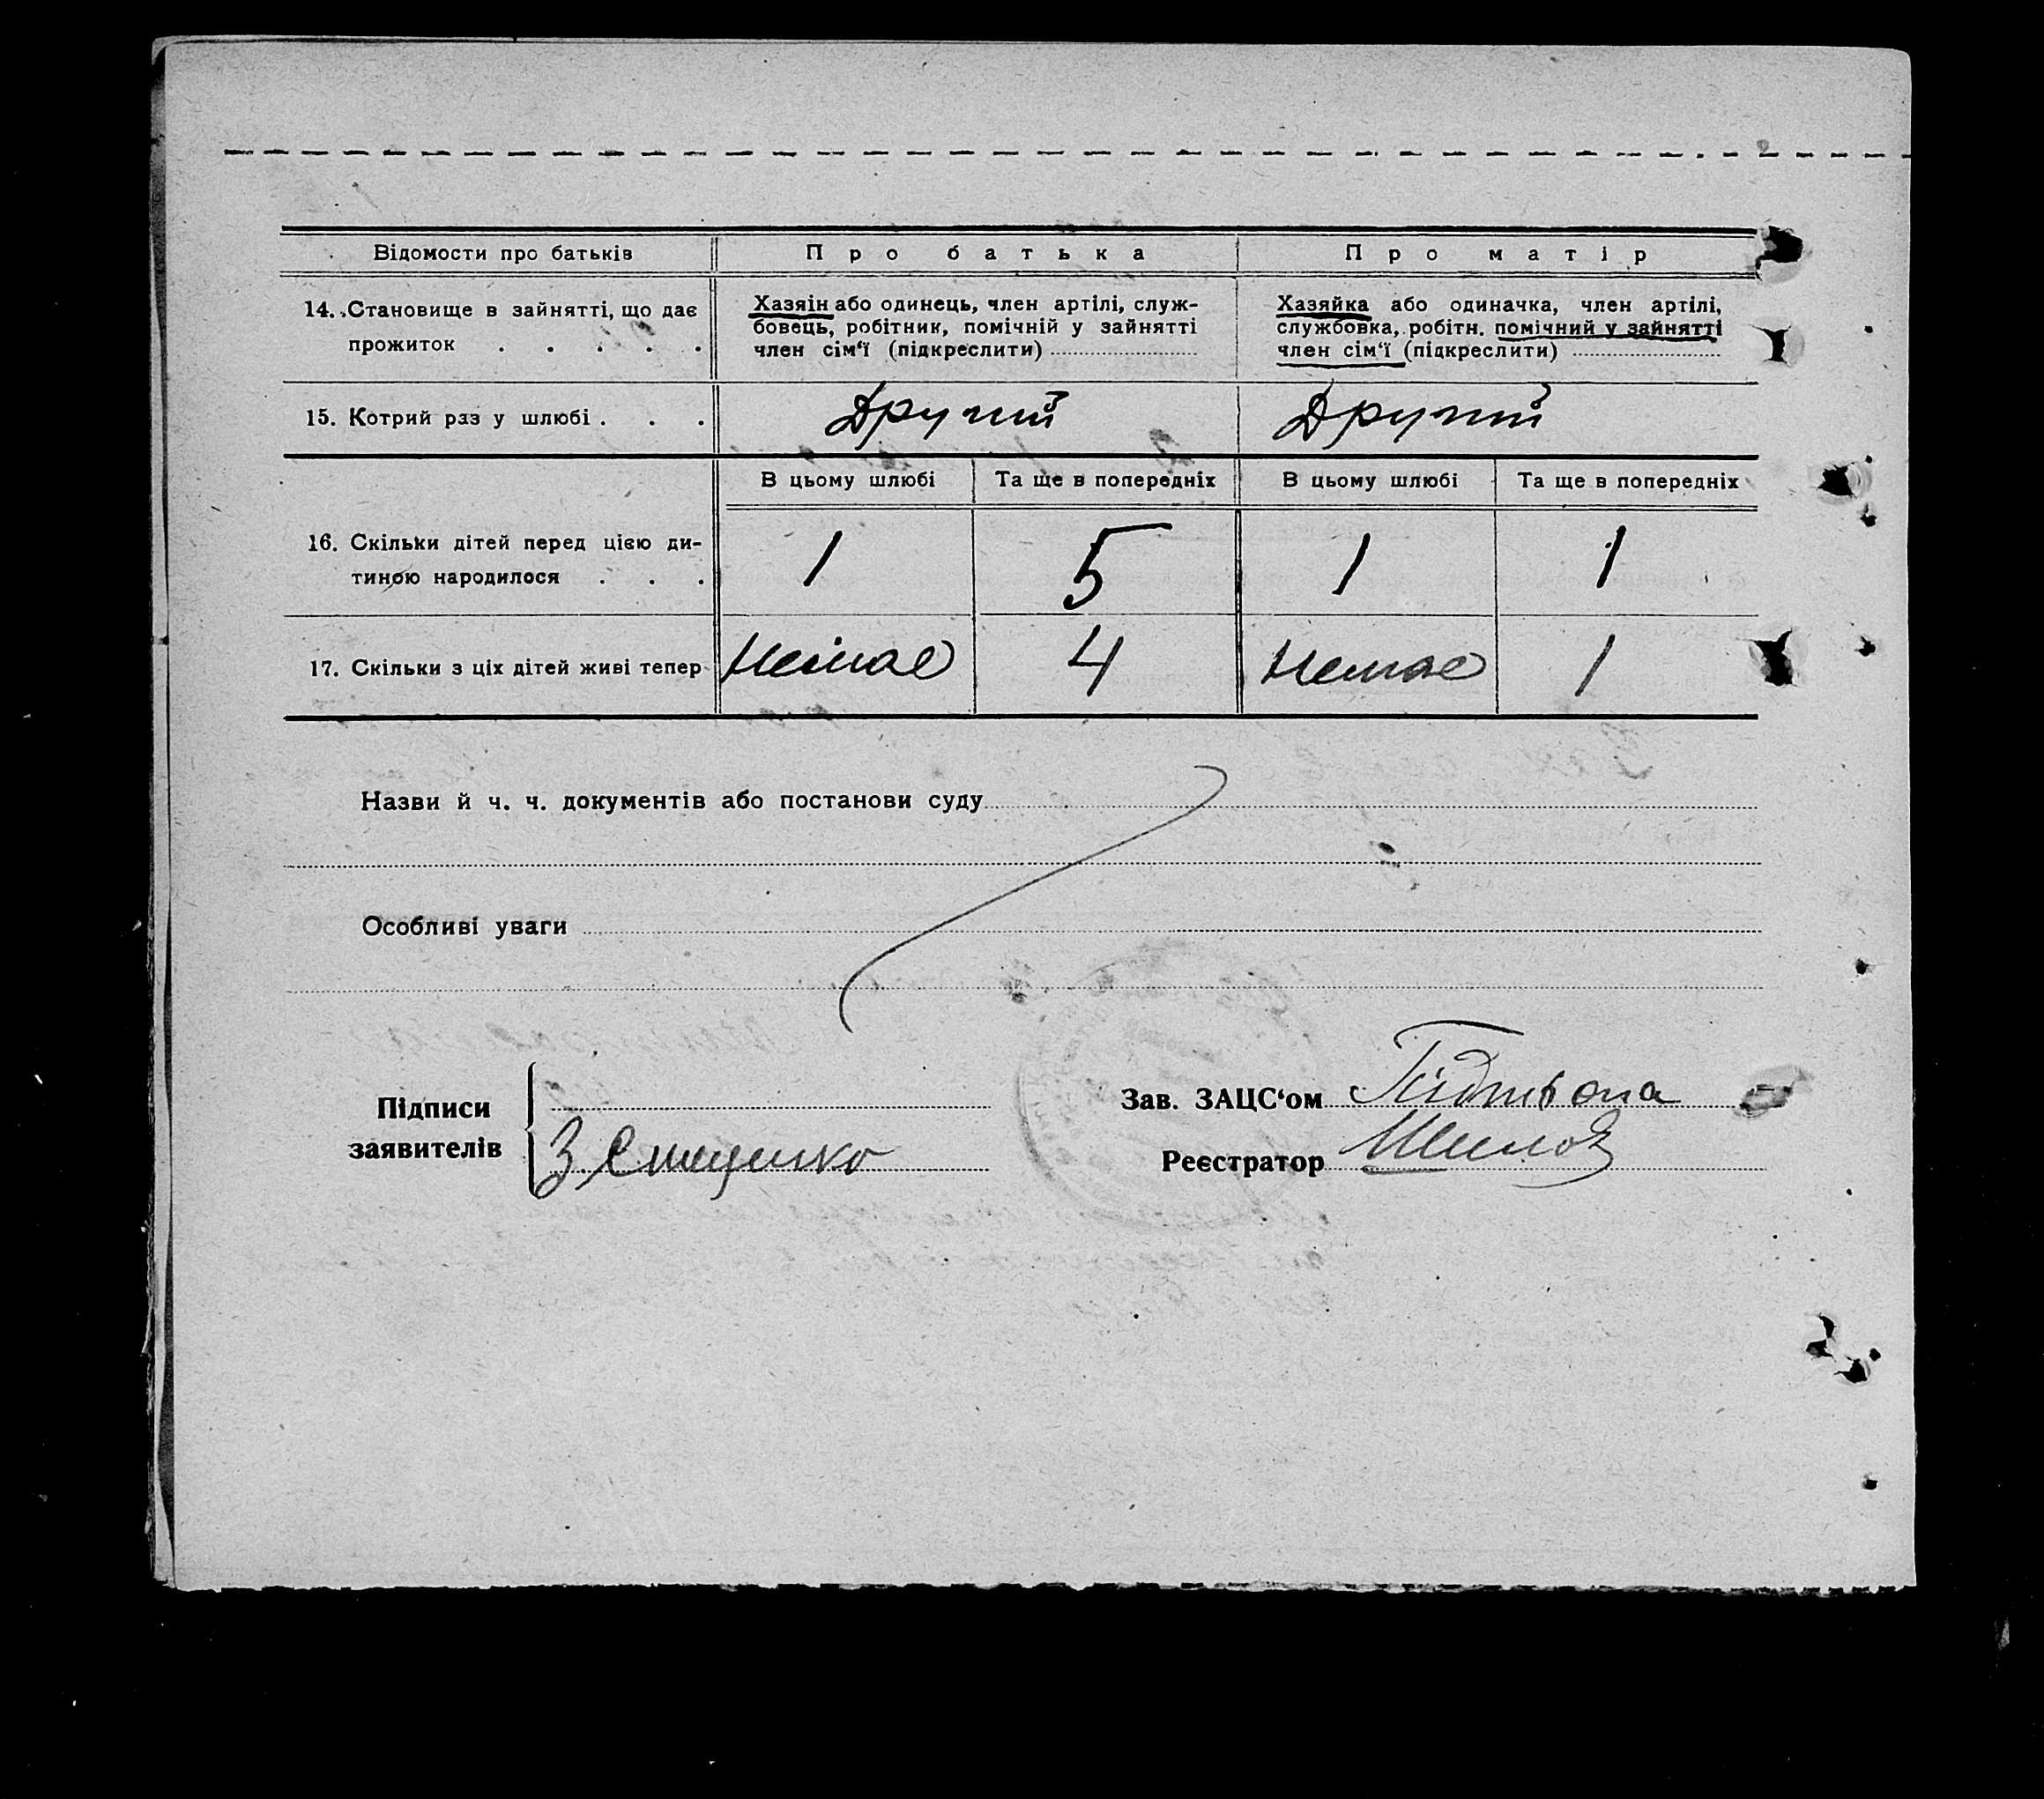 Відомости про батьків
Про батька
Про матір
14. Становище в зайнятті, що дає
прожиток . . . . .
Хазяїн або одинець, член артілі, служ-
бовець, робітник, помічній у зайнятті
член сім‘ї (підкреслити)
Хазяйка або одиначка, член артілі,
службовка, робітн. помічний у зайнятті
член сім‘ї (підкреслити)
15. Котрий раз у шлюбі . . .
Другий
Другий
В цьому шлюбі
Та ще в попередніх
В цьому шлюбі
Та ще в попередніх
16. Скільки дітей перед цією ди-
тиною народилося . . .
1
5
1
1
17. Скільки з ціх дітей живі тепер
Немає
4
Немає
1
Назви й ч. ч. документів або постанови суду
Особливі уваги
Підписи
заявителів
Зав. ЗАЦС‘ом
Реєстратор